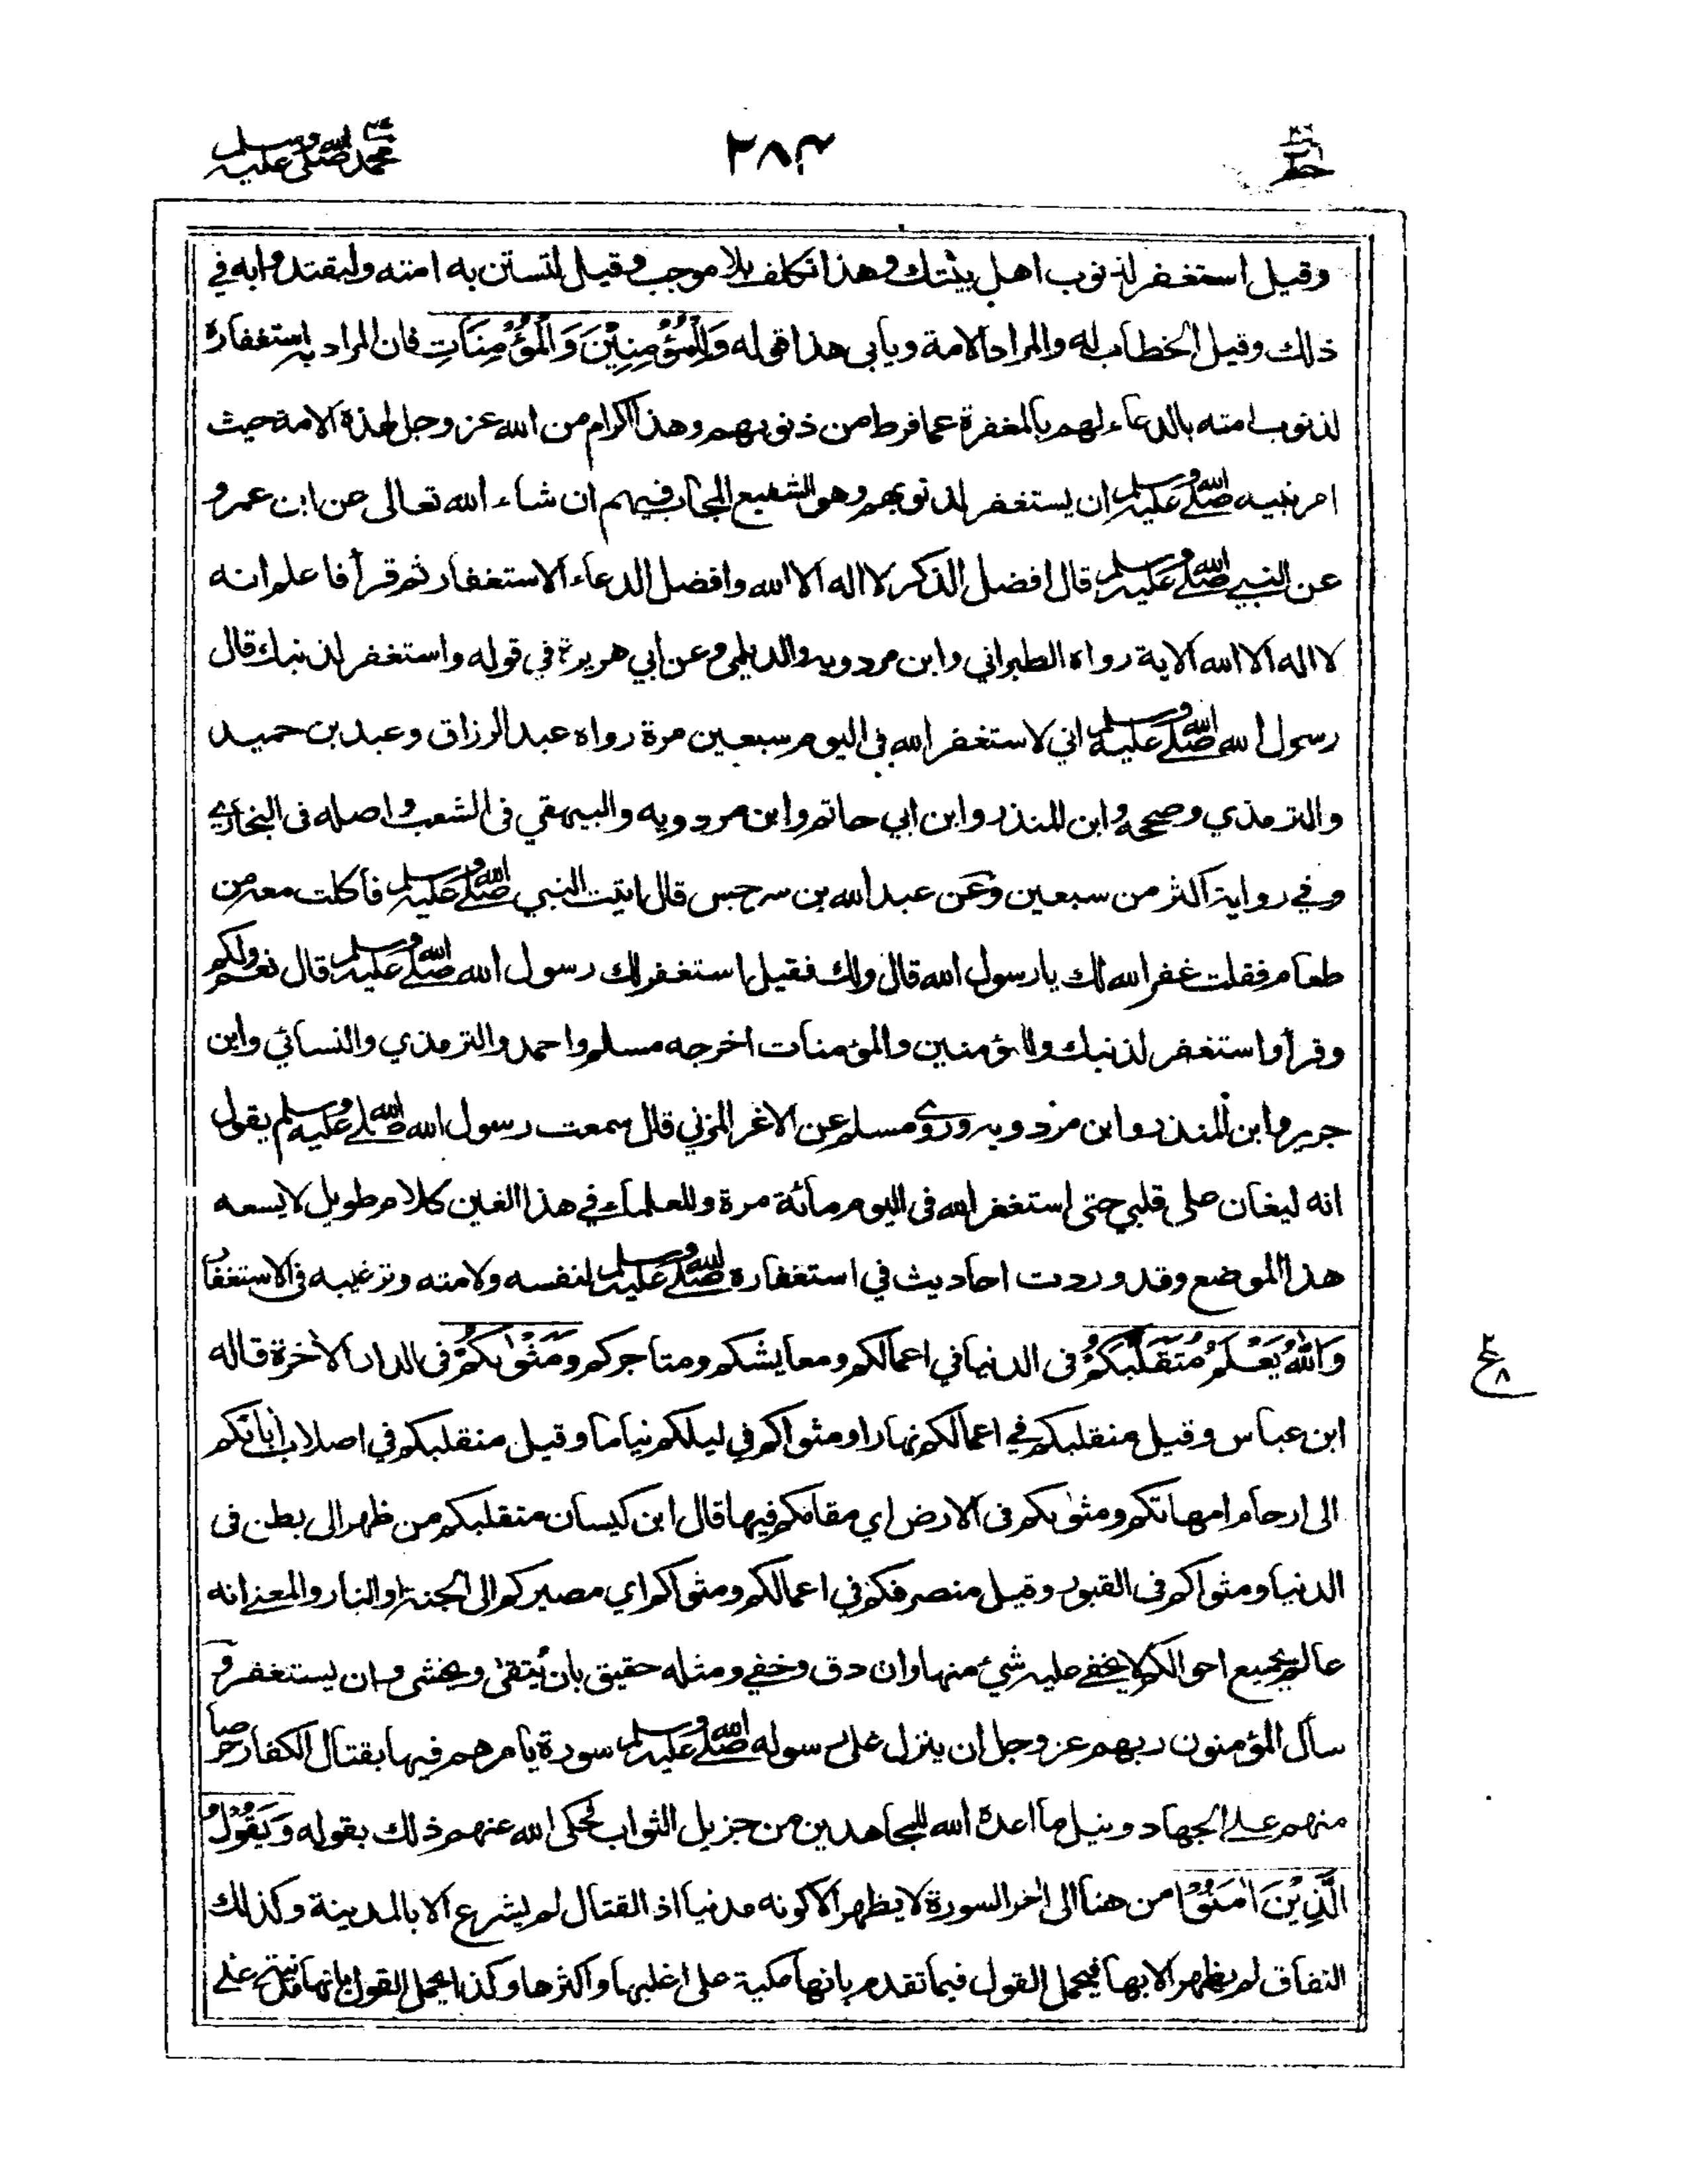 محمد صلى الله عليه وسلم
٢٨٤
حم
وقيل استغفر لذنوب اهل بيتك وهذا تكلف بلا موجب وقيل لتستن به امته وليقتدوا به في
ذلك وقيل الخطاب له والمراد الامة ويأبى هذا قوله وَالْمُؤْمِنِيْنَ وَالْمُؤْمِنَاتِ فان المراد به استغفاره
لذنوب امته بالدعاء لهم بالمغفرة عما فرط من ذنوبهم وهذا اكرام من الله عز وجل لهذة الامة حيث
امر نبيه صلى الله عليه وسلم ان يستغفر لذنوبهم وهو الشفيع المجاب فيهم ان شاء الله تعالى عن ابن عمرو
عن النبي صلى الله عليه وسلم قال افضل الذكر لا اله الا الله وافضل الدعاء الاستغفار ثم قرأ فاعلم انه
لا اله الا الله الاية رواه الطبراني وابن مردويه والديلمي وعن ابي هريرة في قوله واستغفر لذنبك قال
رسول الله صلى الله عليه وسلم اني لاستغفر الله في اليوم سبعين مرة رواه عبد الرزاق وعبد بن حميد
والترمذي وصححه وابن المنذر وابن ابي حاتم وابن مردويه والبيهقي في الشعب واصله في البخاري
وفي رواية اكثر من سبعين وعن عبد الله بن سرجس قال اتيت النبي صلى الله عليه وسلم فأكلت معه من
طعام فقلت غفر الله لك يا رسول الله قال ولك فقيل استغفر لك رسول الله صلى الله عليه وسلم قال نعم ولكم
وقرأ واستغفر لذنبك وللمؤمنين والمؤمنات اخرجه مسلم واحمد والترمذي والنسائي وابن
جرير وابن المنذر وابن مردويه وروى مسلم عن الاغر المزني قال سمعت رسول الله صلى الله عليه وسلم يقول
انه ليغان على قلبي حتى استغفر الله في اليوم مائة مرة وللعلماء في هذا الغين كلام طويل لا يسعه
هذا الموضع وقد وردت احاديث في استغفاره صلى الله عليه وسلم لنفسه ولامته وترغيبه في الاستغفار
وَاللّٰهُ يَعْلَمُ مُتَقَلَّبَكُمْ في الدنيا في اعمالكم ومعايشكم ومتاجركم وَمَثْوٰىكُمْ في الدار الأخرة قاله
ابن عباس وقيل منقلبكم في اعمالكم نهارا ومثواكم في ليلكم نياما وقيل منقلبكم في اصلاب اٰبائكم
الى ارحام امهاتكم ومثوٰىكم في الارض اي مقامكم فيها قال ابن كيسان متقلبكم من ظهر الى بطن في
الدنيا ومثواكم في القبور وقيل منصرفكم في اعمالكم ومثواكم اي مصيركم الى الجنة او النار والمعنى انه
عالم بجميع احوالكم لا يخفى عليه شيء منها وان دق وخفي ومثله حقيق بان يُتقىٰ ويخشى وان يستغفر و
سأل المؤمنون ربهم عز وجل ان ينزل على رسوله صلى الله عليه وسلم سورة يامرهم فيها بقتال الكفار حرصا
منهم على الجهاد ونيل ما اعده الله للمجاهدين من جزيل الثواب فحكى الله عنهم ذلك بقوله وَيَقُوْلُ
الَّذِيْنَ اٰمَنُوْا من هنا الى اٰخر السورة لا يظهر الا كونه مدنيا اذ القتال لم يشرع الا بالمدينة وكذلك
النفاق لم يظهر الا بها فيحمل القول فيما تقدم بانها مكية على اغلبها واكثرها وكذا يحمل القول بانها على
ع
٢
٨